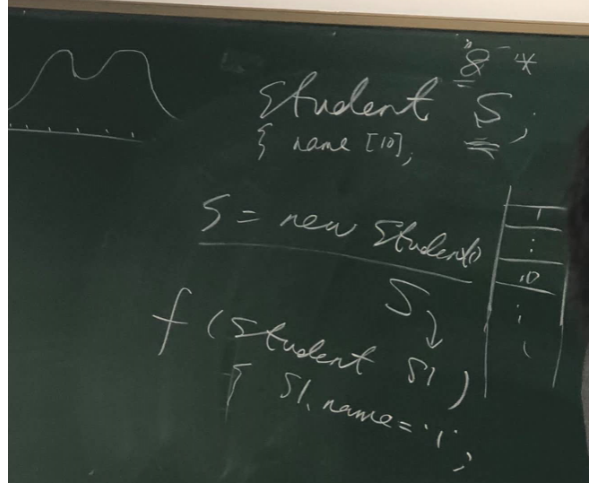 "8" *
Student S;
{ name [10];
S = new Student()
1
:
10
:
S
f (Student S1)
{ S1.name = 'i';